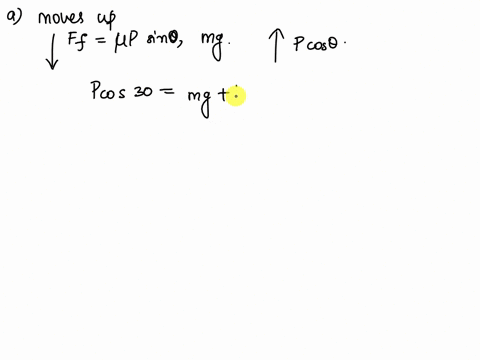 a) moves up
↓ Ff = μP sinθ, mg. ↑ Pcosθ.
Pcos 30 = mg +